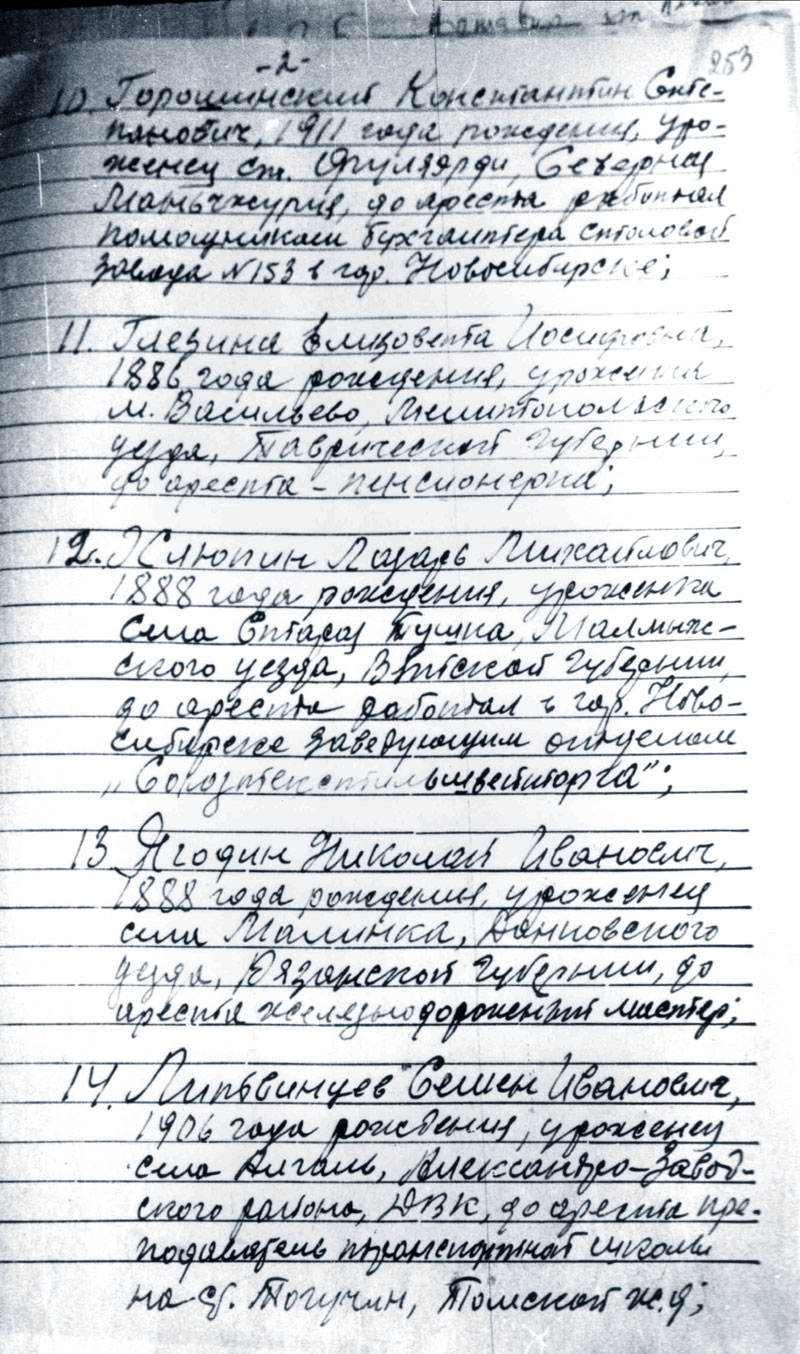 -2-
253
10. Горошинский Константин Сте-
панович, 1911 года рождения, уро-
женец ст. Фуляэрди, Северная
Маньчжурия, до ареста работал
помощником бухгалтера столовой
завода N 153 в гор. Новосибирске;
11. Глезина Елизовета Иосифовна,
1886 года рождения, уроженка
м. Васильево, Мелитопольского
уезда, Таврической губернии,
до ареста - пенсионерка;
12. Клюпин Лазарь Михайлович,
1888 года рождения, уроженка
села Старая Тушка, Малмыж-
ского уезда, Вятской губернии,
до ареста работал в гор. Ново-
сибирске заведующим отделом
„Союзтекстильшвейторга";
13 Ягодин Николай Иванович,
1888 года рождения, уроженец
села Малинка, Данковского
уезда, Рязанской губернии, до
ареста железнодорожный мастер;
14. Литвинцев Семен Иванович,
1906 года рождения, уроженец
села Алгань, Александро-Завод-
ского района, ДВК, до ареста пре-
подаватель транспортной школы
на ст. Тогучин, Томской ж.д;